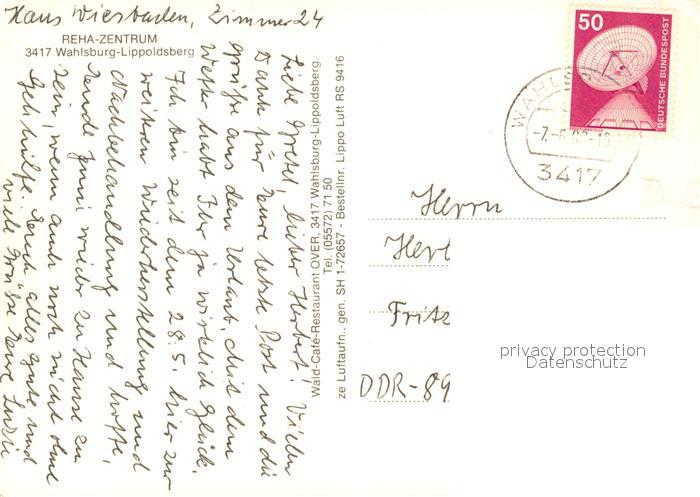 Haus Wiesbaden, Zimmer 24
REHA-ZENTRUM
3417 Wahlsburg-Lippoldsberg
Liebe Gretel, lieber Herbert! Vielen
Dank für Eure letzte Post und die
Grüße aus dem Urlaub. Mit dem
Wetter habt Ihr ja wirklich Glück.
Ich bin seit dem 28.5. hier zur
weiteren Wiederherstellung und
Nachbehandlung und hoffe,
Ende Juni wieder zu Hause zu
sein, wenn auch noch nicht ohne
Gehhilfe. Euch alles Gute und
viele Grüße Eure
Wald-Café-Restaurant OVER, 3417 Wahlsburg-Lippoldsberg
Tel. (05572) 71 50
ze Luftaufn., gen. SH 1-72657 - Bestellnr. Lippo Luft RS 9416
50
DEUTSCHE BUNDESPOST
WAHL
3417
Herrn
Her
Fritz
DDR-89
privacy protection
Datenschutz